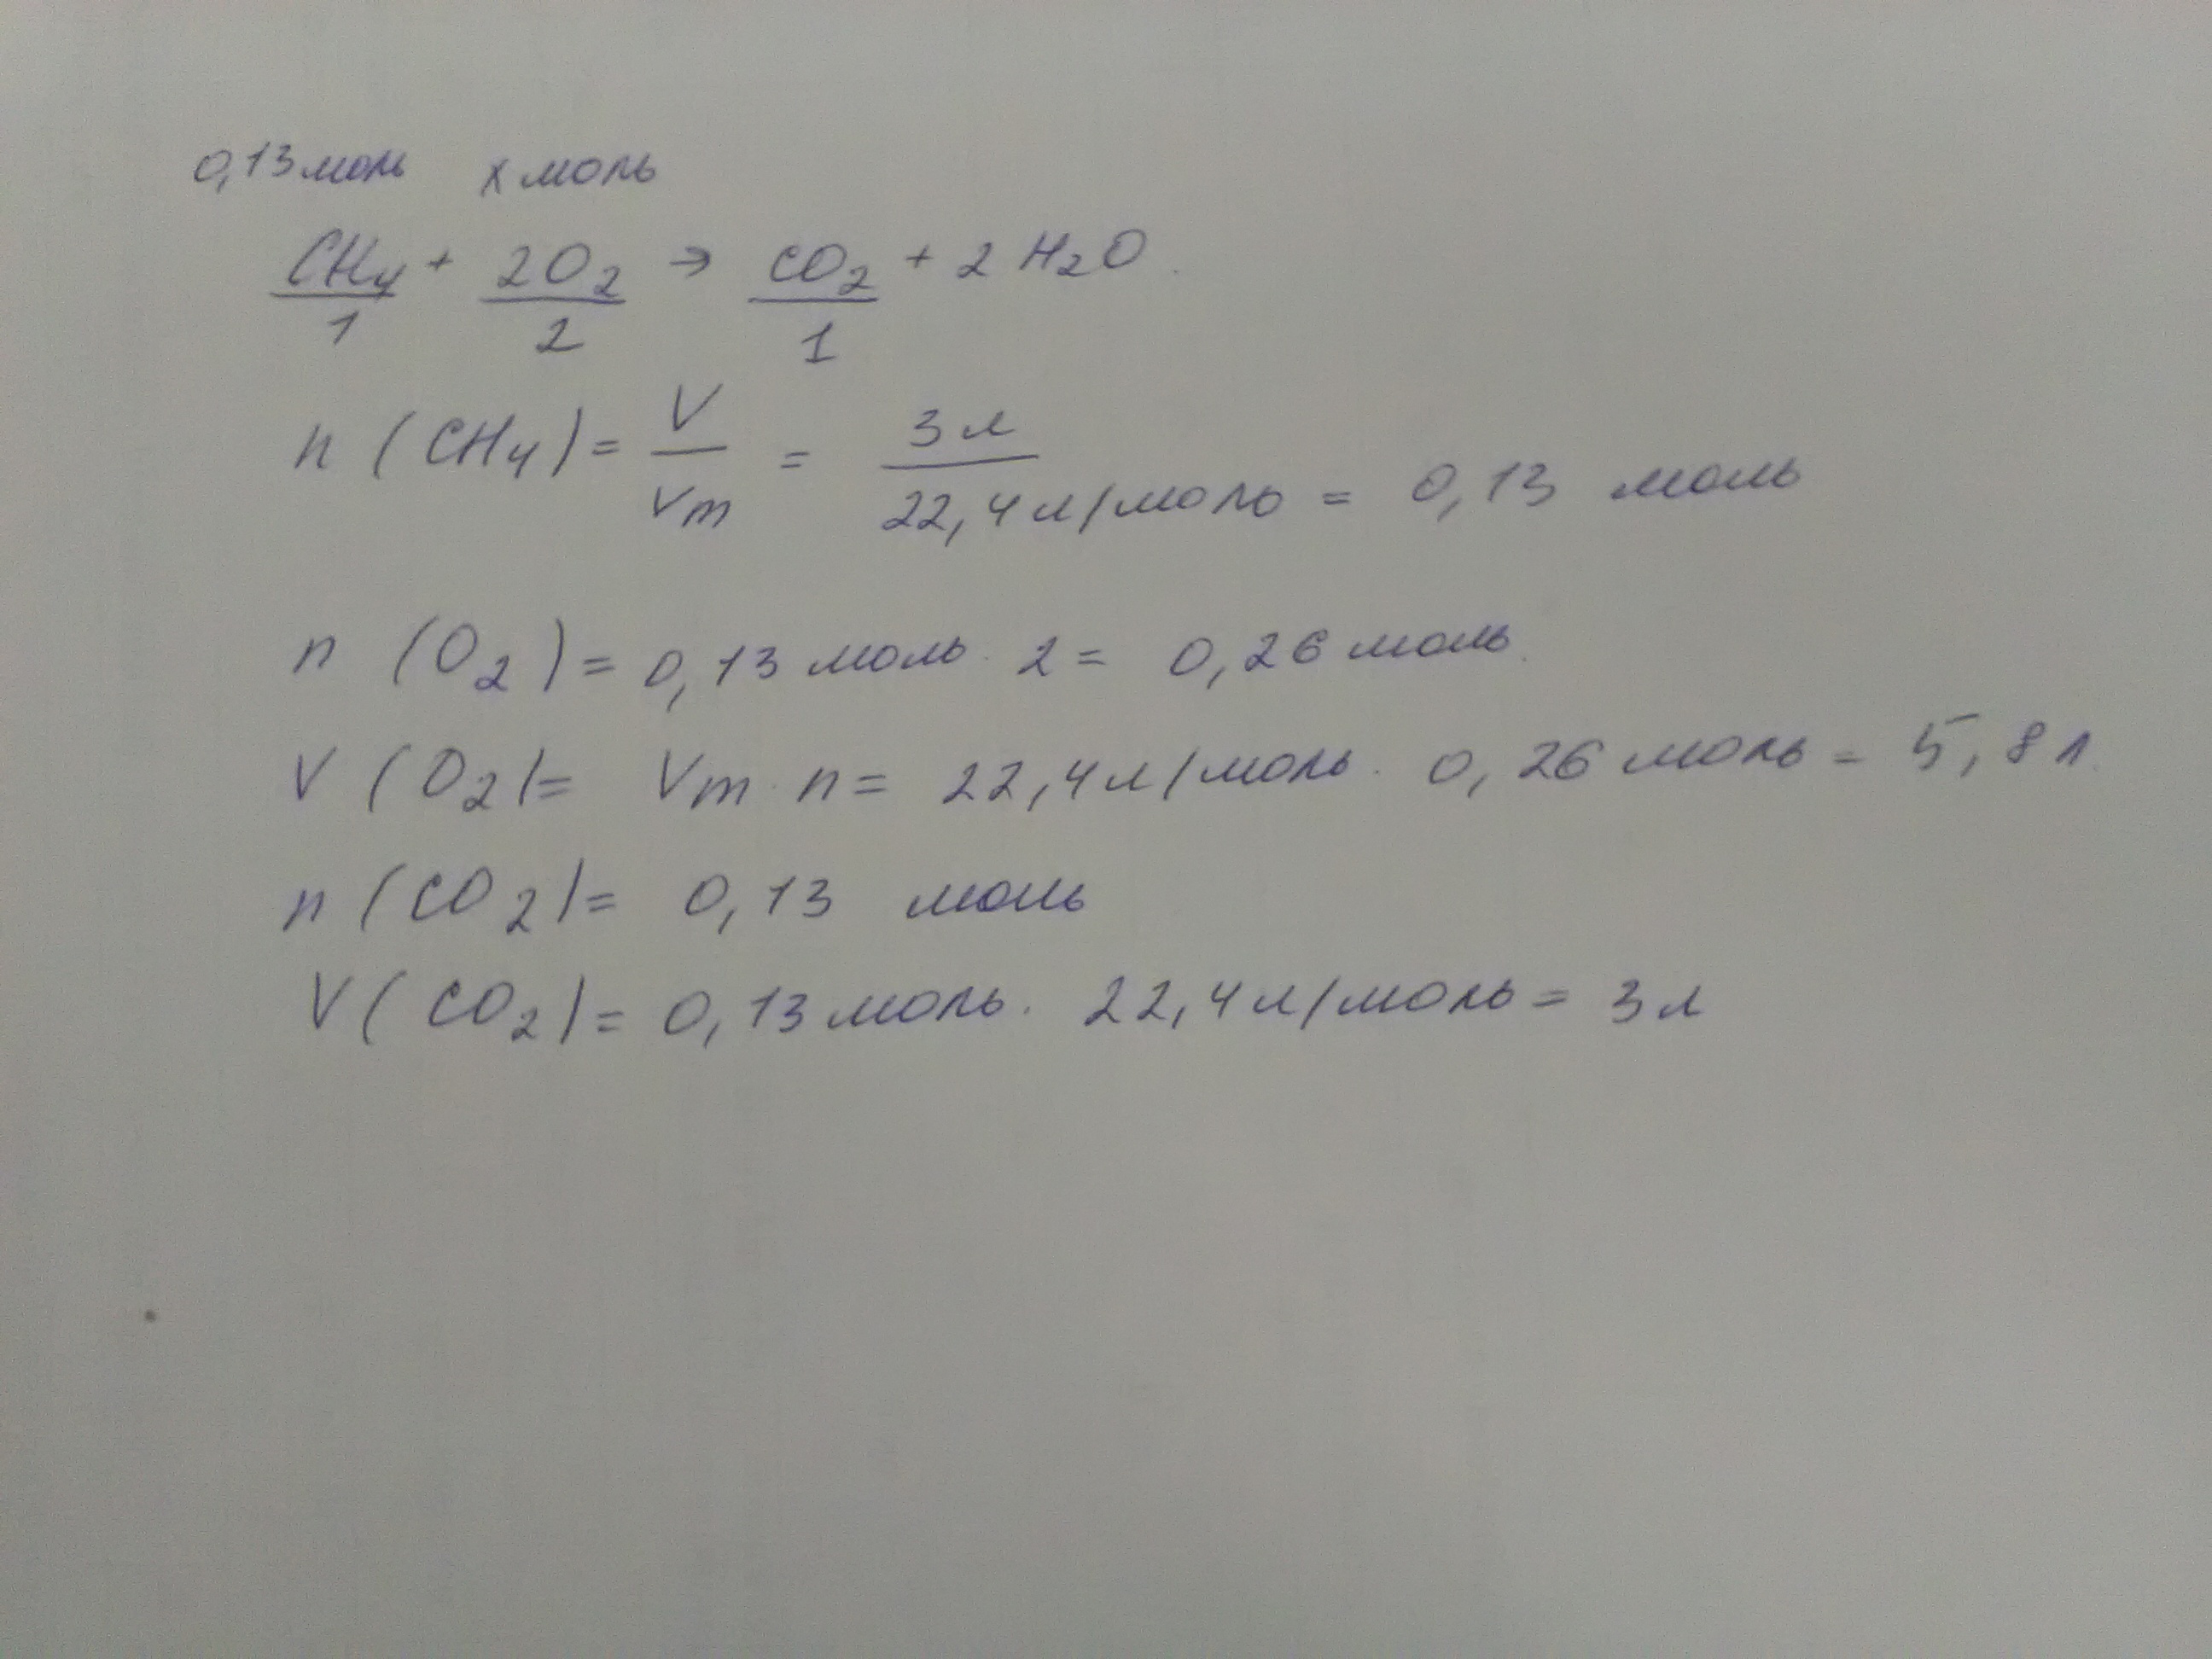 0,13 моль х моль
CH₄ + 2O₂ → CO₂ + 2 H₂O.
1 2 1
n (CH₄) = V/Vm = 3 л / 22,4 л/моль = 0,13 моль
n (O₂) = 0,13 моль · 2 = 0,26 моль.
V (O₂) = Vm · n = 22,4 л/моль · 0,26 моль = 5,8 л.
n (CO₂) = 0,13 моль
V (CO₂) = 0,13 моль · 22,4 л/моль = 3 л